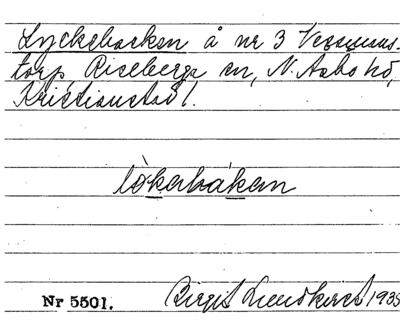 Lyckebacken å nr 3 Vessmans-
torp, Riseberga sn, N. Åsbo hd,
Kristianstad l.
lò̱kebáḵen
Nr 5501. Birgit Lundkvist 1935